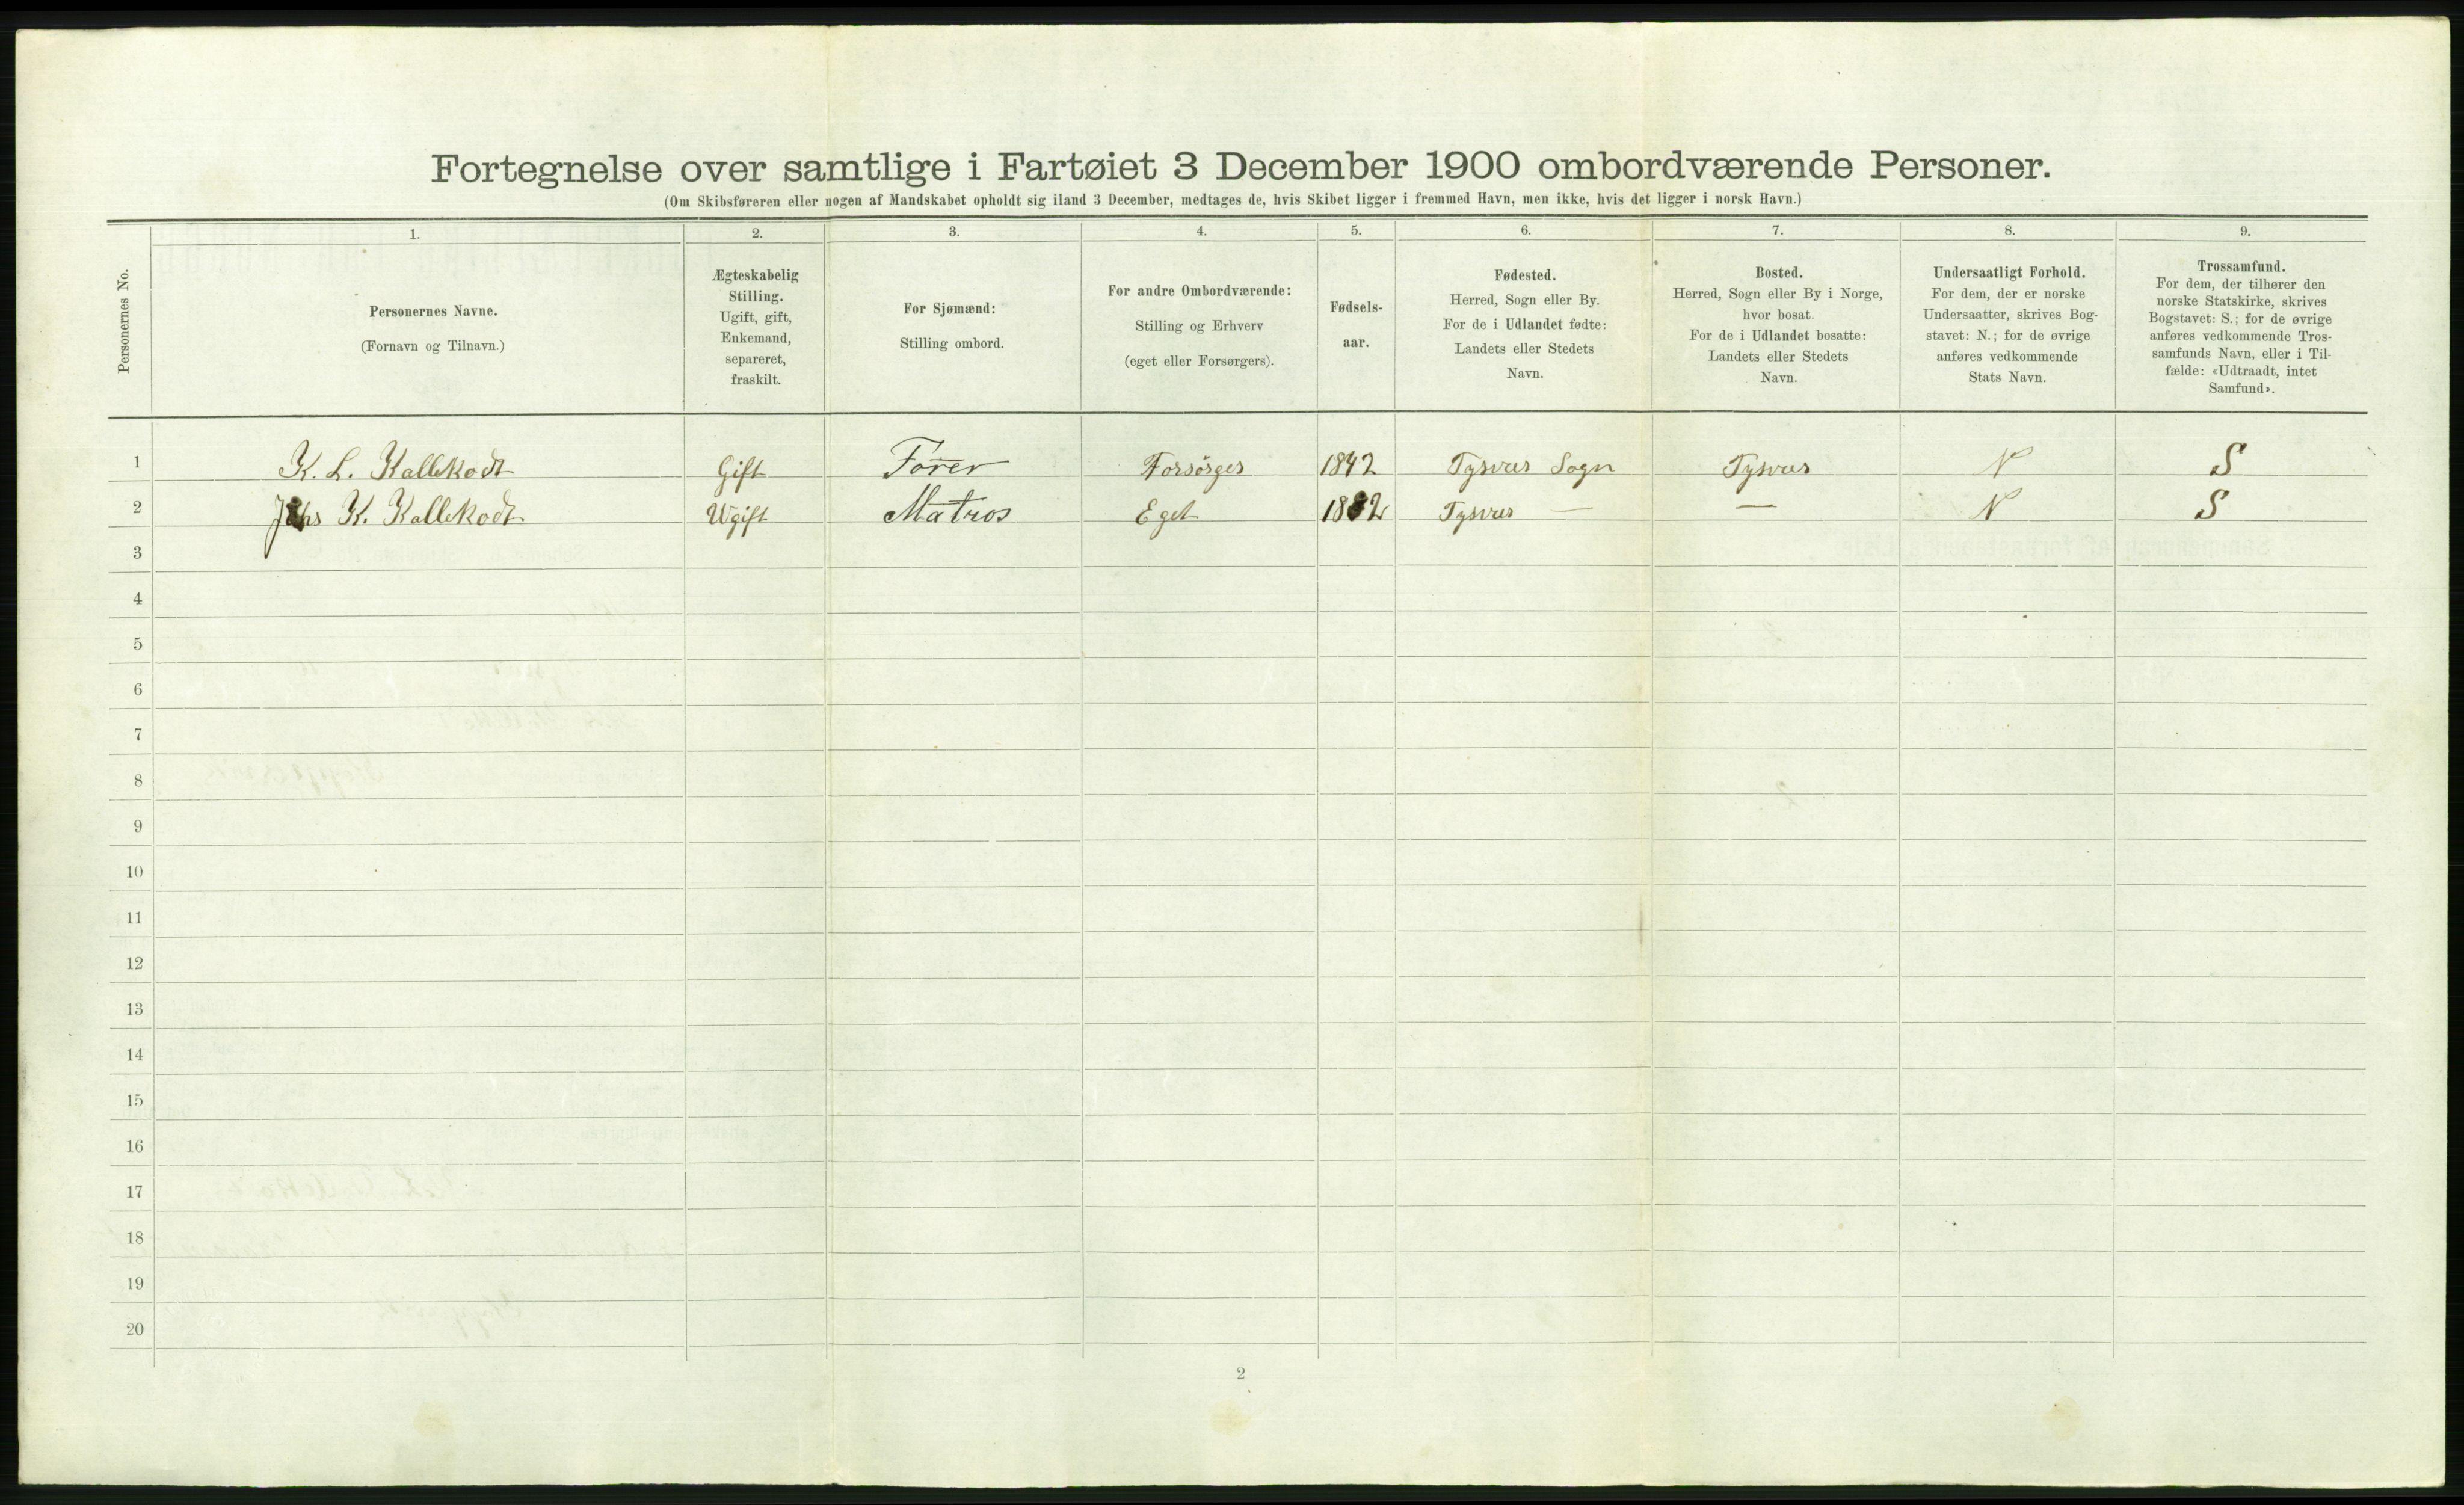 Fortegnelse over samtlige i Fartøiet 3 December 1900 ombordværende Personer.
(Om Skibsføreren eller nogen af Mandskabet opholdt sig iland 3 December, medtages de, hvis Skibet ligger i fremmed Havn, men ikke, hvis det ligger i norsk Havn.)
Personernes No.
1.
Personernes Navne.
(Fornavn og Tilnavn.)
2.
Ægteskabelig
Stilling.
Ugift, gift,
Enkemand,
separeret,
fraskilt.
3.
For Sjømænd:
Stilling ombord.
4.
For andre Ombordværende:
Stilling og Erhverv
(eget eller Forsørgers).
5.
Fødsels-
aar.
6.
Fødested.
Herred, Sogn eller By.
For de i Udlandet fødte:
Landets eller Stedets
Navn.
7.
Bosted.
Herred, Sogn eller By i Norge,
hvor bosat.
For de i Udlandet bosatte:
Landets eller Stedets
Navn.
8.
Undersaatligt Forhold.
For dem, der er norske
Undersaatter, skrives Bog-
stavet: N.; for de øvrige
anføres vedkommende
Stats Navn.
9.
Trossamfund.
For dem, der tilhører den
norske Statskirke, skrives
Bogstavet: S.; for de øvrige
anføres vedkommende Tros-
samfunds Navn, eller i Til-
fælde: «Udtraadt, intet
Samfund».
1 K. L. Kallekodt Gift Förer Forsörger 1842 Tysvær Sogn Tysvær N S
2 K. Kallekodt Ugift Matros Eget 1882 Tysvær — — N S
3
4
5
6
7
8
9
10
11
12
13
14
15
16
17
18
19
20
2